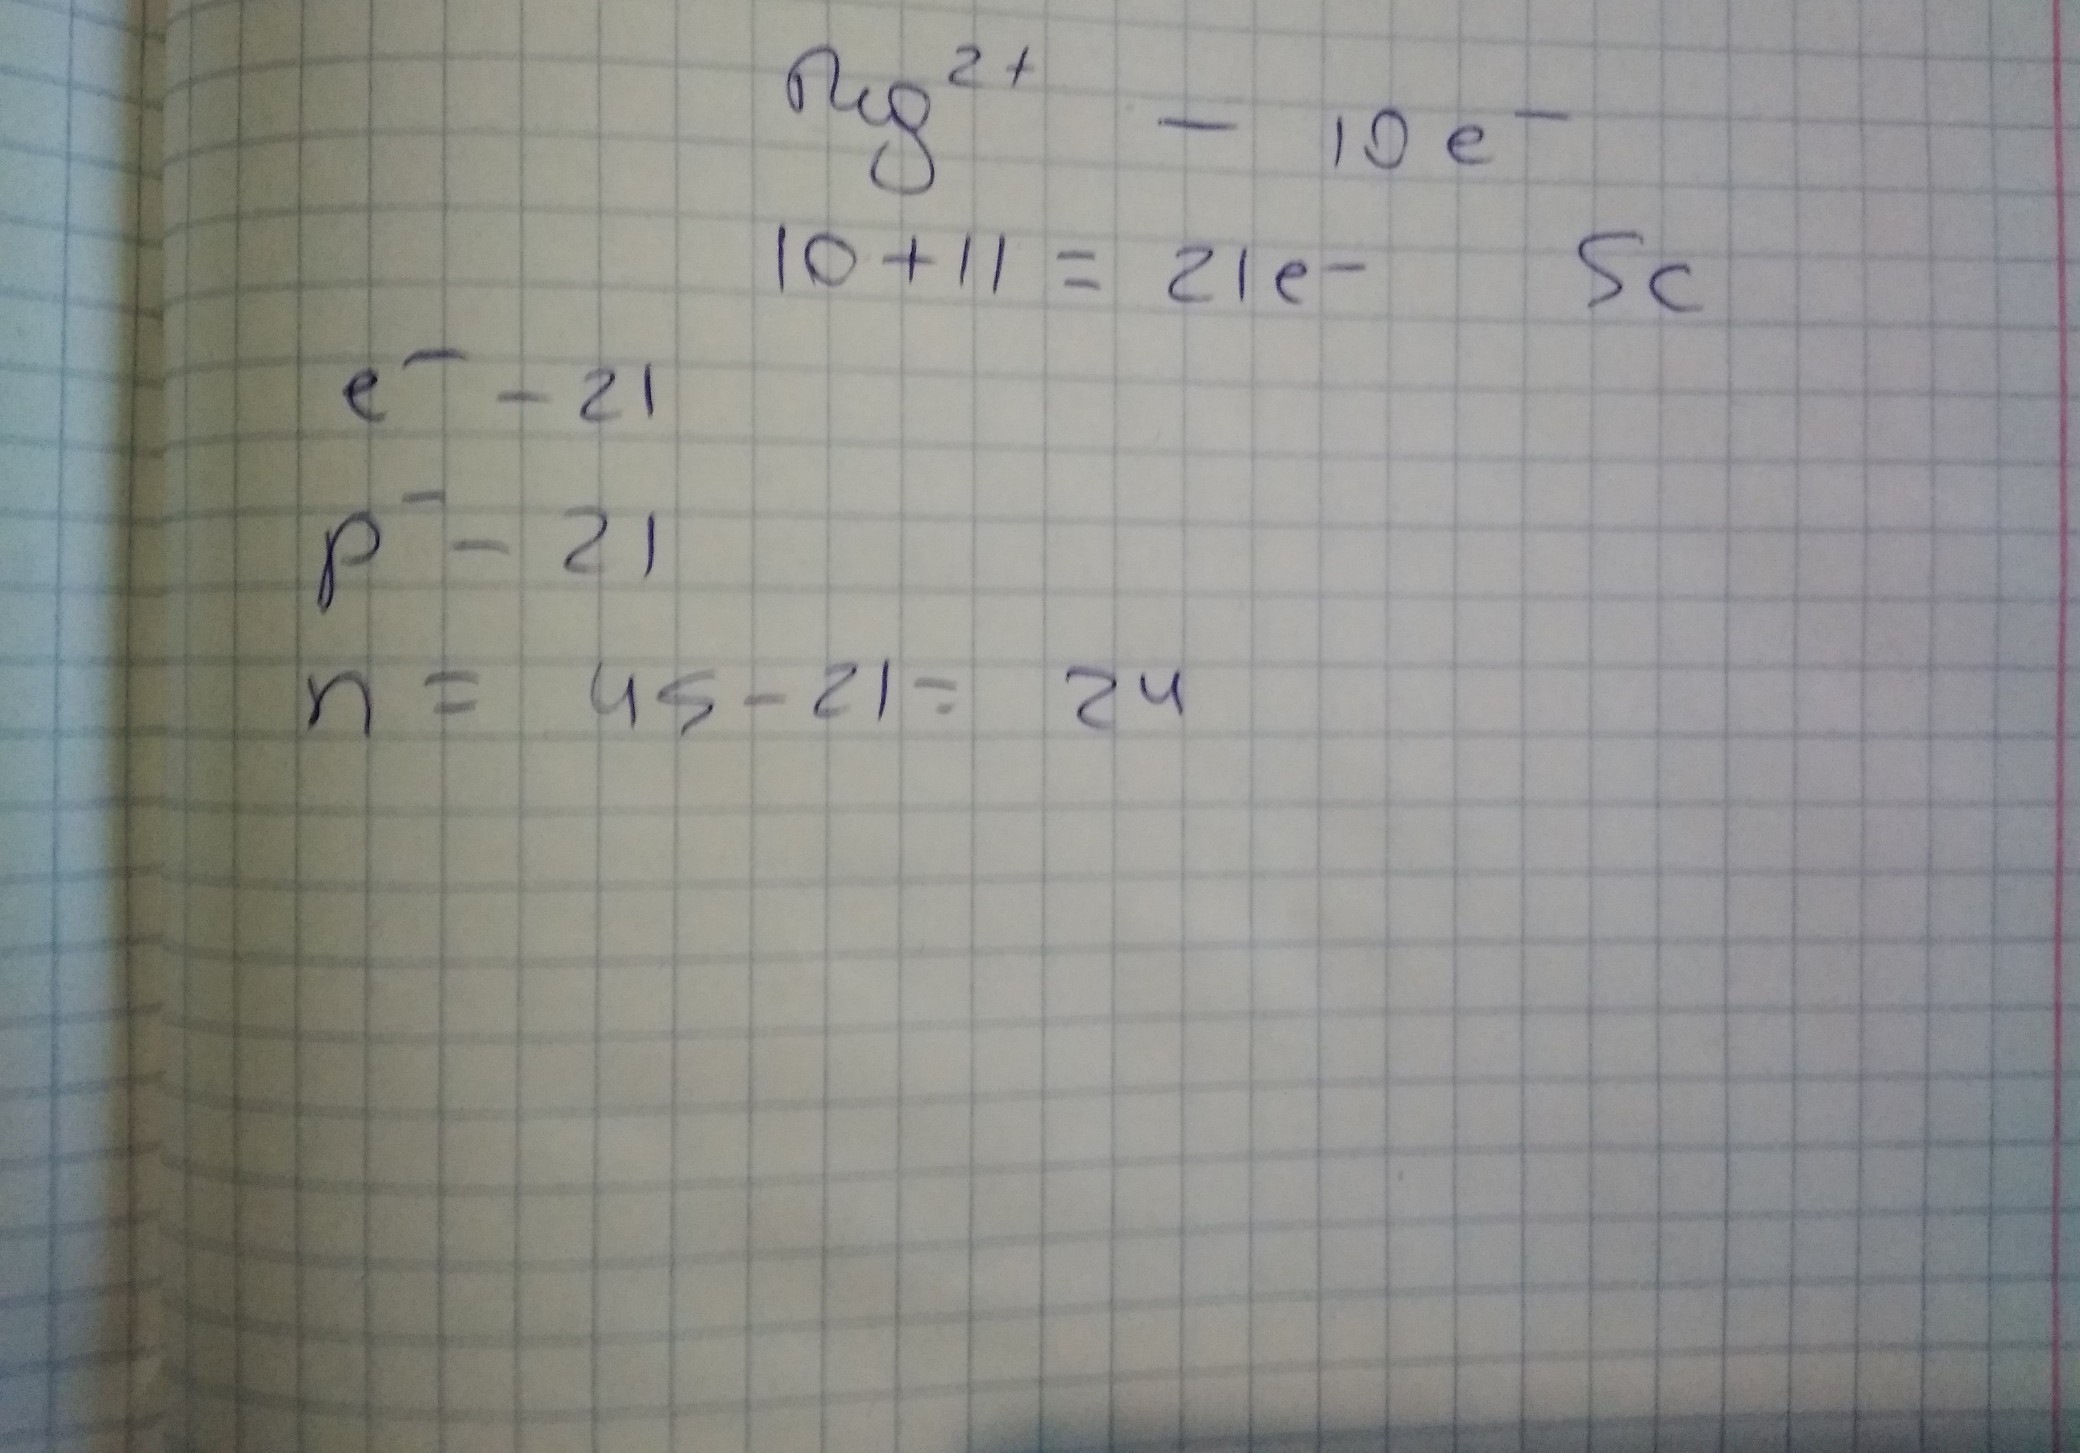 Mg²⁺ – 10 e⁻
10 + 11 = 21e⁻ Sc
e⁻ – 21
p⁻ – 21
n = 45 – 21 = 24